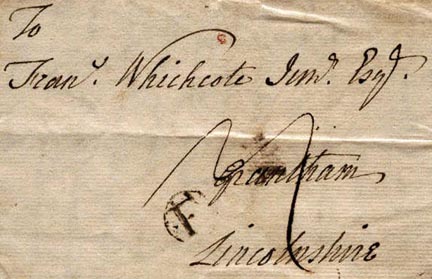 To
Frans. Whichcote Junr. Esqr.
Grantham
Lincolnshire